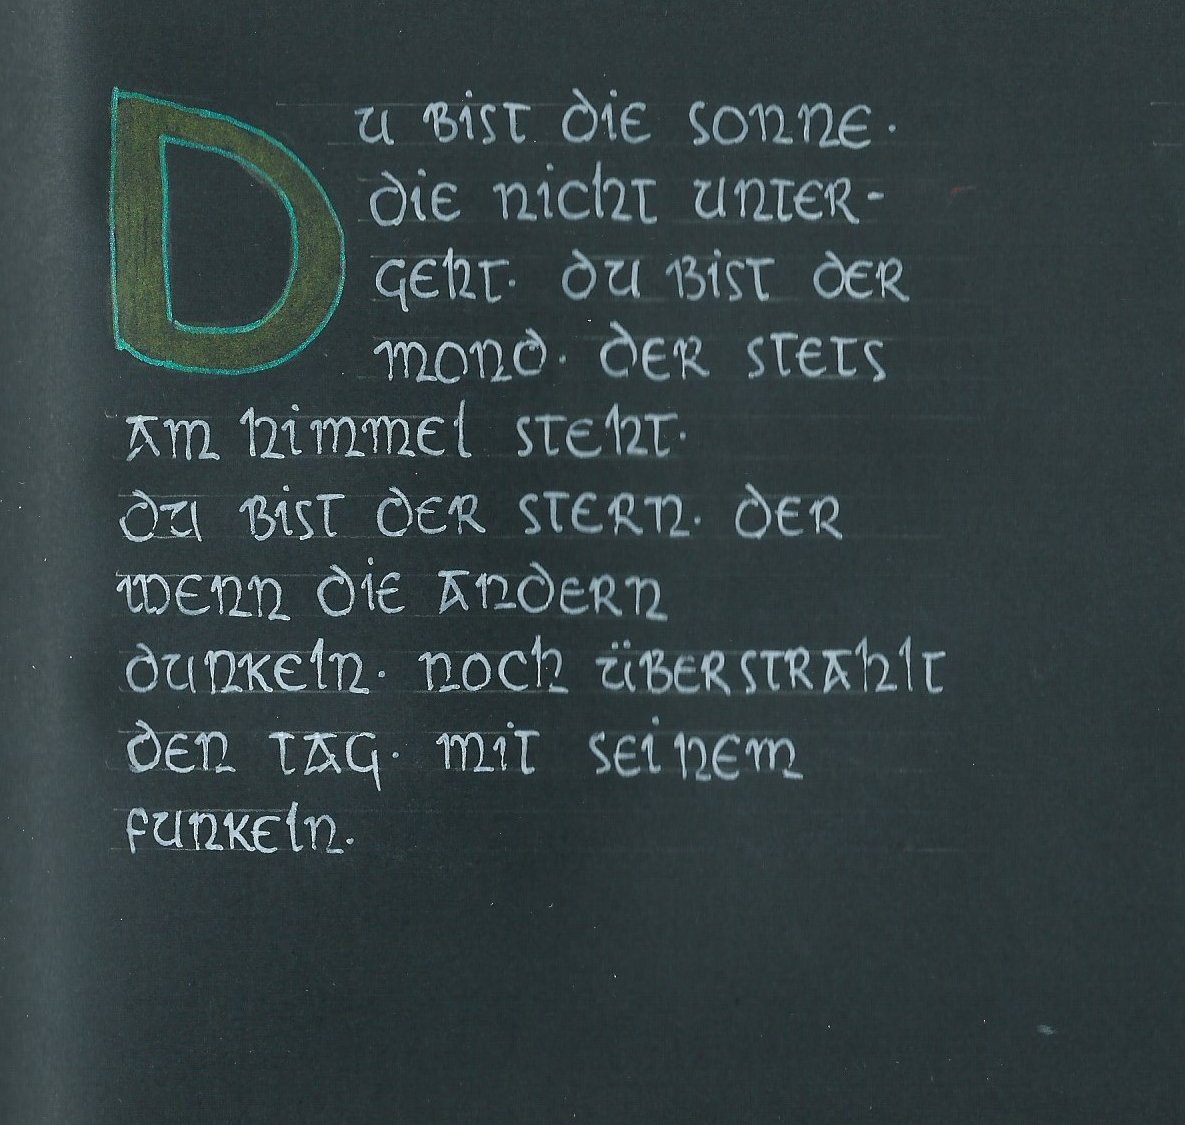 Du bist die Sonne.
die nicht unter-
geht. du bist der
Mond. der stets
am Himmel steht.
du bist der Stern. der
wenn die andern
dunkeln. noch überstrahlt
den Tag. mit seinem
Funkeln.